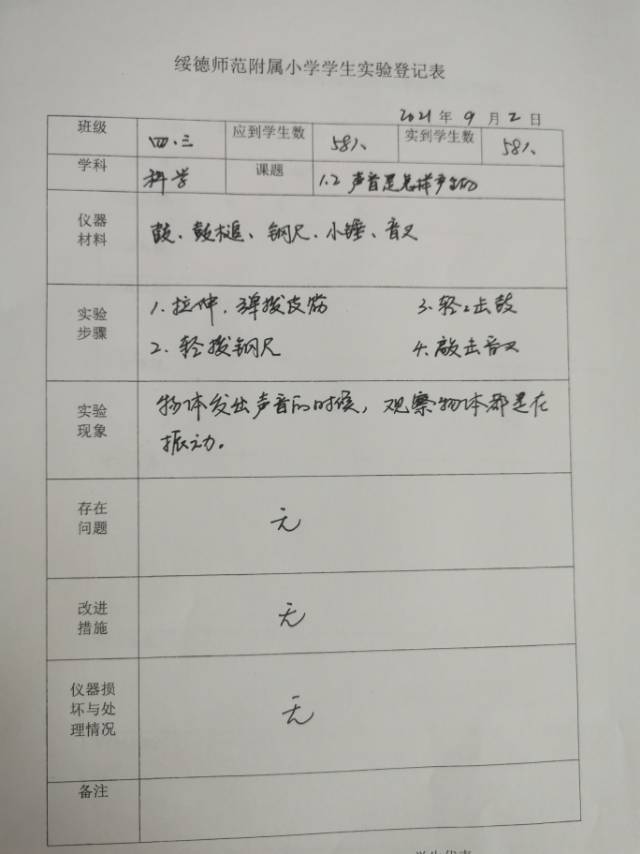 绥德师范附属小学学生实验登记表
2021年9月2日
班级 四.三 应到学生数 58人 实到学生数 58人
学科 科学 课题 1.2 声音是怎样产生的
仪器材料 鼓、鼓槌、钢尺、小锤、音叉
实验步骤 1.拉伸、弹拨皮筋 3.轻轻击鼓
2.轻拨钢尺 4.敲击音叉
实验现象 物体发出声音的时候,观察物体都是在
振动。
存在问题 无
改进措施 无
仪器损坏与处理情况 无
备注
学生代表